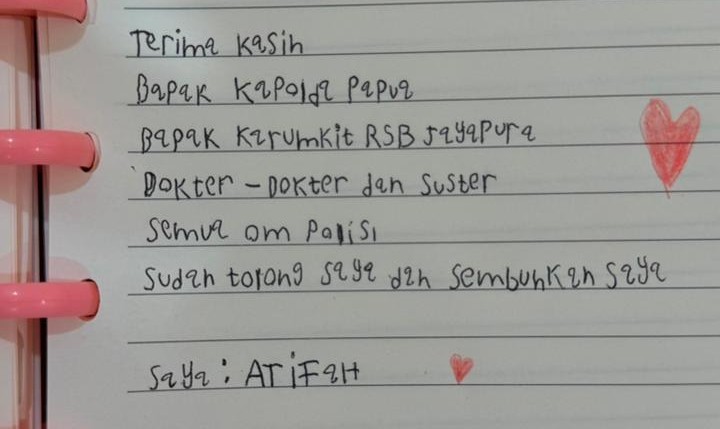 Terima kasih
Bapak Kapolda Papua
Bapak Karumkit RSB Jayapura
Dokter - Dokter dan Suster
Semua om Polisi
Sudah tolong saya dan sembuhkan saya
Saya : ATiFaH